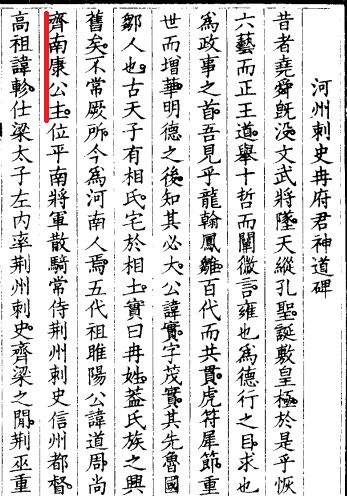 河州刺史冉府君神道碑
昔者堯舜旣没。文武將墜。天縱孔聖。誕敷皇極。於是乎恢
六藝而正王道。舉十哲而闡微言。雍也爲德行之目。求也
爲政事之首。吾見乎龍翰鳳雛。百代而共貫。虎符尾節。重
世而增華。明德之後。知其必大。公諱實。字茂實。其先魯國
鄒人也。古天子有相氏。宅於相土。實曰冉姓。葢氏族之興
舊矣。不常厥所。今爲河南人焉。五代祖睢陽公諱道周。尚
齊南康公主。位平南將軍散騎常侍荆州刺史信州都督。
高祖諱軫。仕梁太子左内率荆州刺史。齊梁之閒。荆巫重